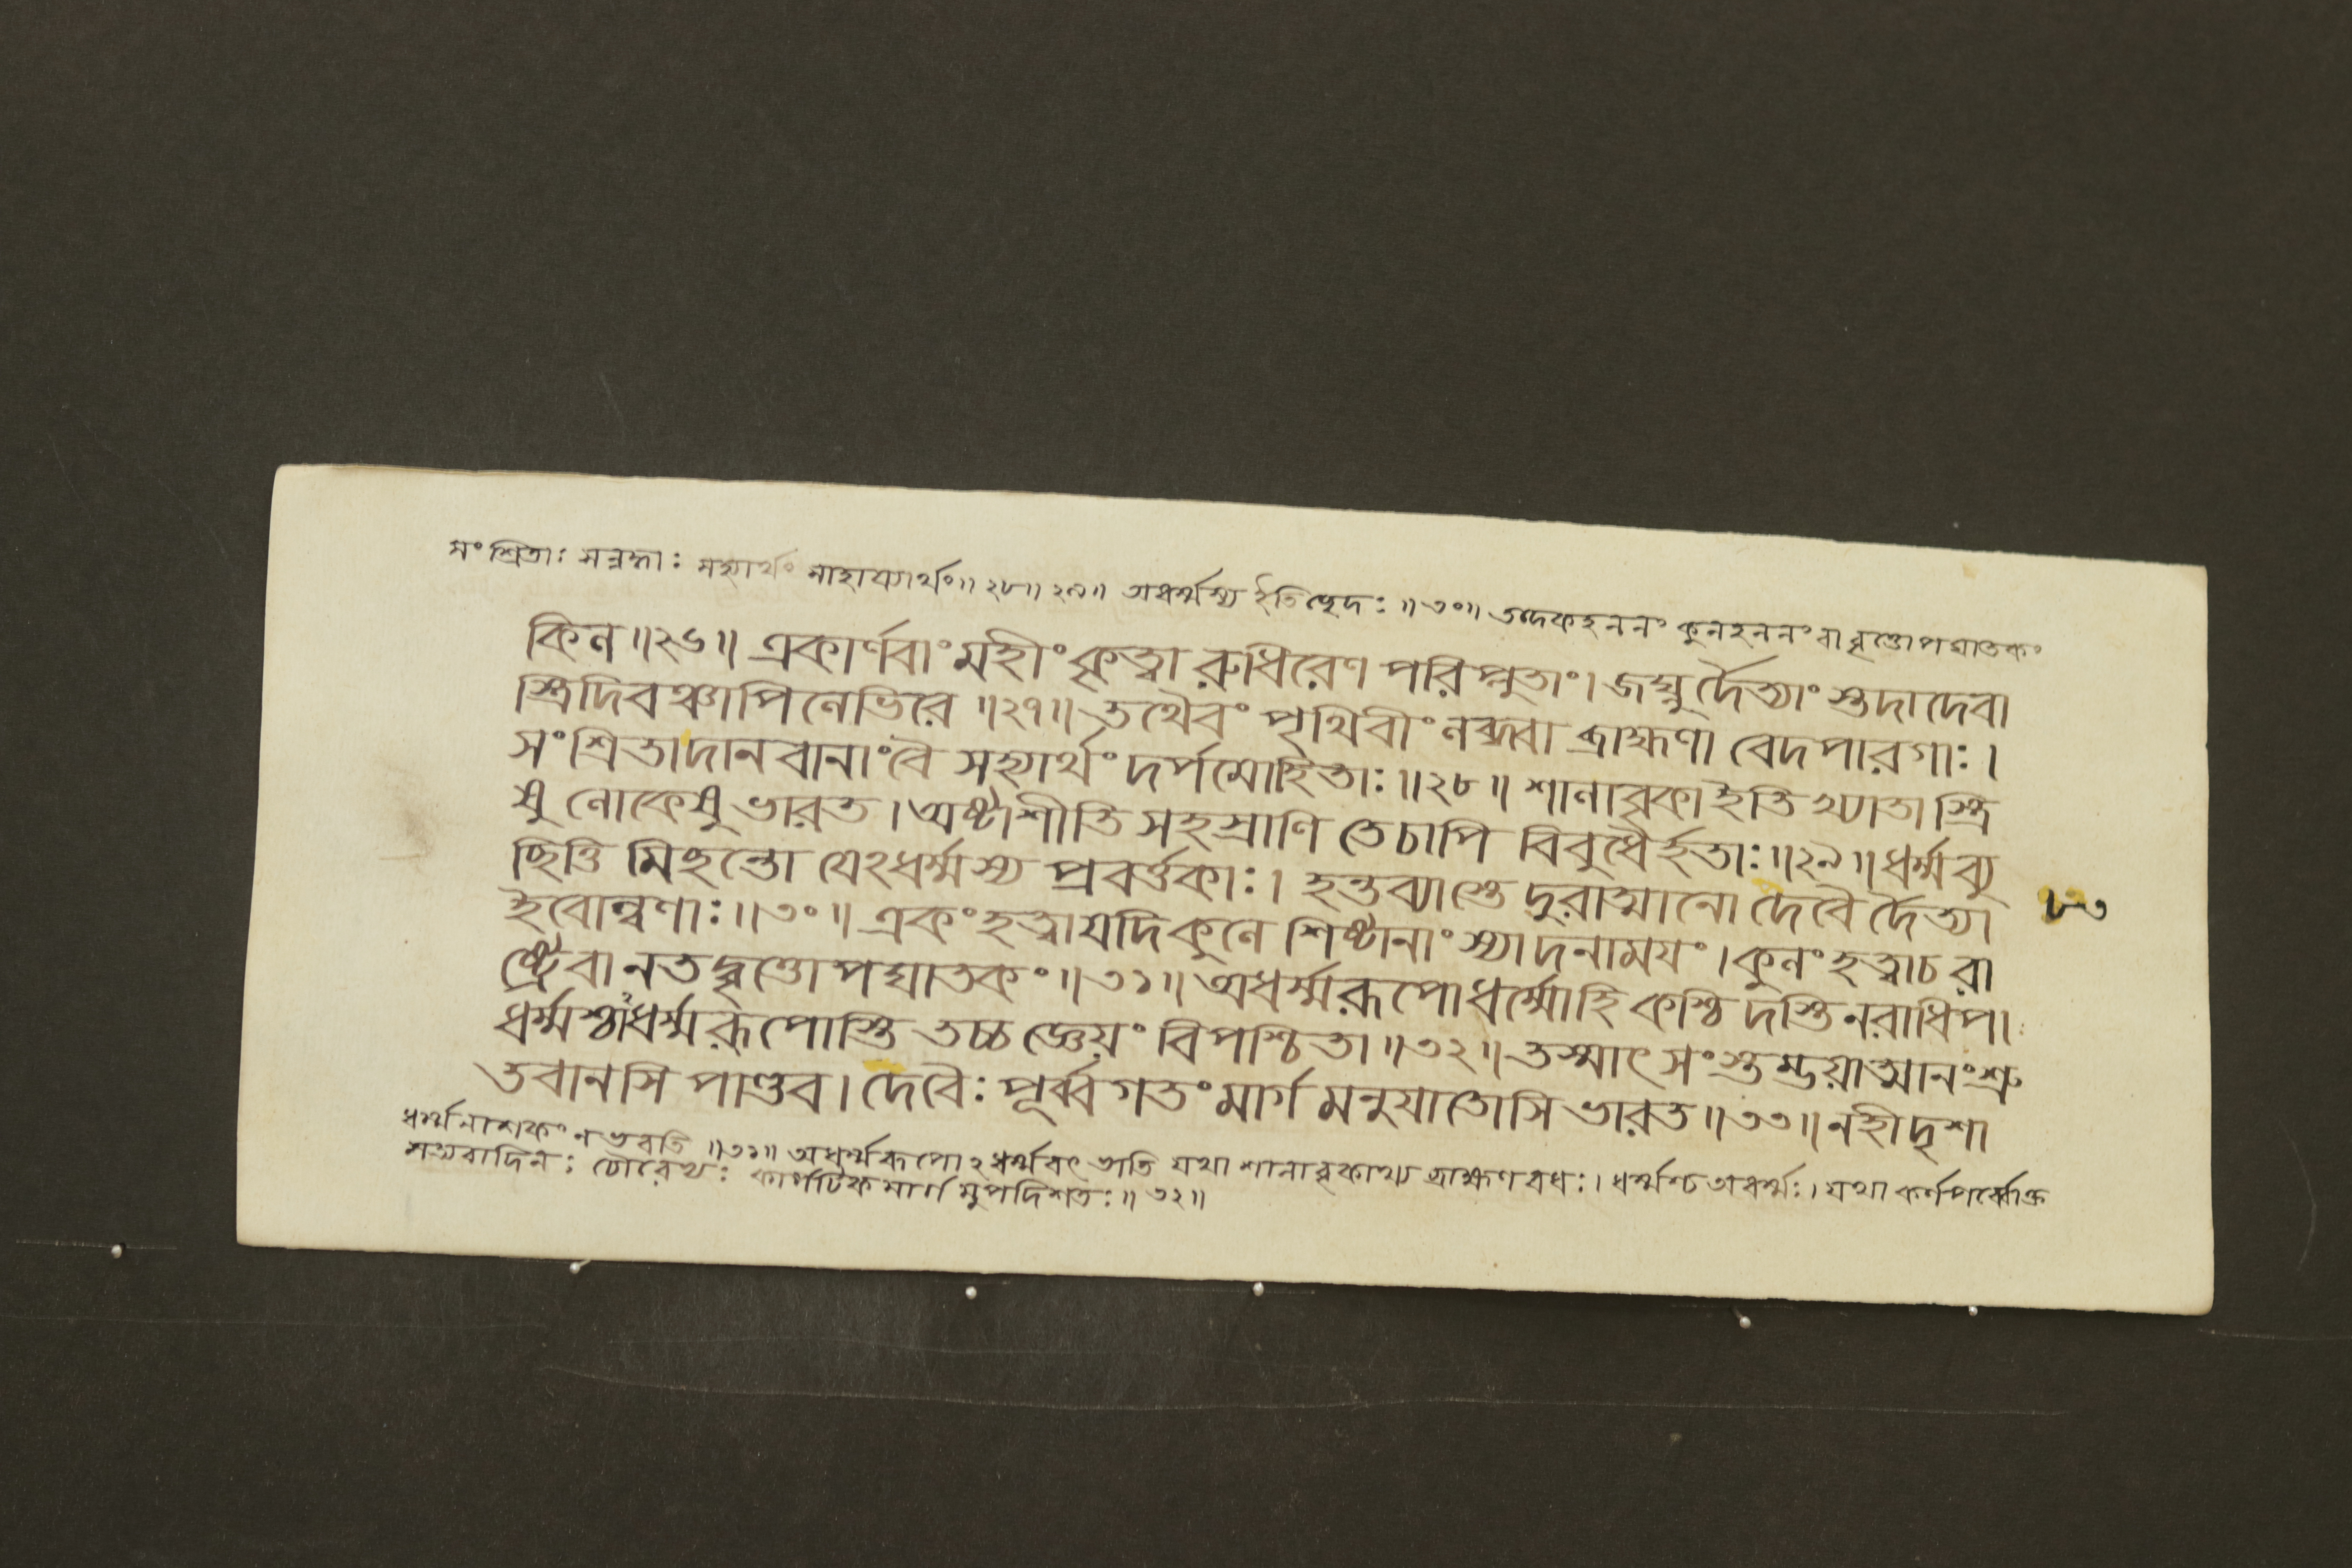 সংশ্রিতাঃ সন্নদ্ধাঃ সহ্যার্থং সাহায্যার্থং॥২৮॥২৯॥ অধর্ম্মস্য ইতিচ্ছেদঃ॥৩০॥ তদেকহননং কুলহননং বা বৃত্তোপঘাতকং
কিল॥২৬॥ একার্ণবাং মহীং কৃত্বা রুধিরেণ পরিপ্লুতাং। জঘ্নুর্দৈত্যাংস্তদা দেবা
স্ত্রিদিবঞ্চাপি লেভিরে॥২৭॥ তথৈবং পৃথিবীং লব্ধ্বা ব্রাহ্মণা বেদপারগাঃ।
সংশ্রিতাদানবানাংবৈ সহ্যার্থং দর্পমোহিতাঃ॥২৮॥ শালাবৃকাইতি খ্যাতাস্ত্রি
ষু লোকেষু ভারত। অষ্টাশীতি সহস্রাণি তেচাপি বিবুধৈর্হতাঃ॥২৯॥ ধর্ম্মব্যু
চ্ছিত্তি মিছন্তো যেঽধর্ম্মস্য প্রবর্ত্তকাঃ। হন্তব্যাস্তে দুরাত্মানো দেবৈর্দৈত্যা
ইবোল্বণাঃ॥৩০॥ একং হত্বাযদি কুলে শিষ্টানাং স্যাদনাময়ং। কুলং হত্বাচ রা
ষ্ট্রেবা নতদ্বৃত্তোপঘাতকং॥৩১॥ অধর্ম্মরূপোধর্ম্মোহি কশ্চিদস্তিনরাধিপ।
ধর্ম্মশ্চাঽধর্ম্মরূপোস্তি তচ্চজ্ঞেয়ং বিপশ্চিতা॥৩২॥ তস্মাৎ সংস্তম্ভয়াত্মানং শ্রু
তবানসি পাণ্ডব। দেবৈঃ পূর্ব্বগতং মার্গ মনুযাতোসি ভারত॥৩৩॥ নহীদৃশা
৮৩
ধর্ম্মনাশকং নভবতি॥৩১॥ অধর্ম্মরূপোঽধর্ম্মবৎ ভাতি যথা শালাবৃকাখ্য ব্রাহ্মণবধঃ। ধর্ম্মশ্চ অধর্ম্মঃ। যথা কর্ণপর্ব্বোক্ত
সত্যবাদিনঃ চৌরেভ্যঃ কার্পটিকমার্গমুপদিশতঃ॥৩২॥